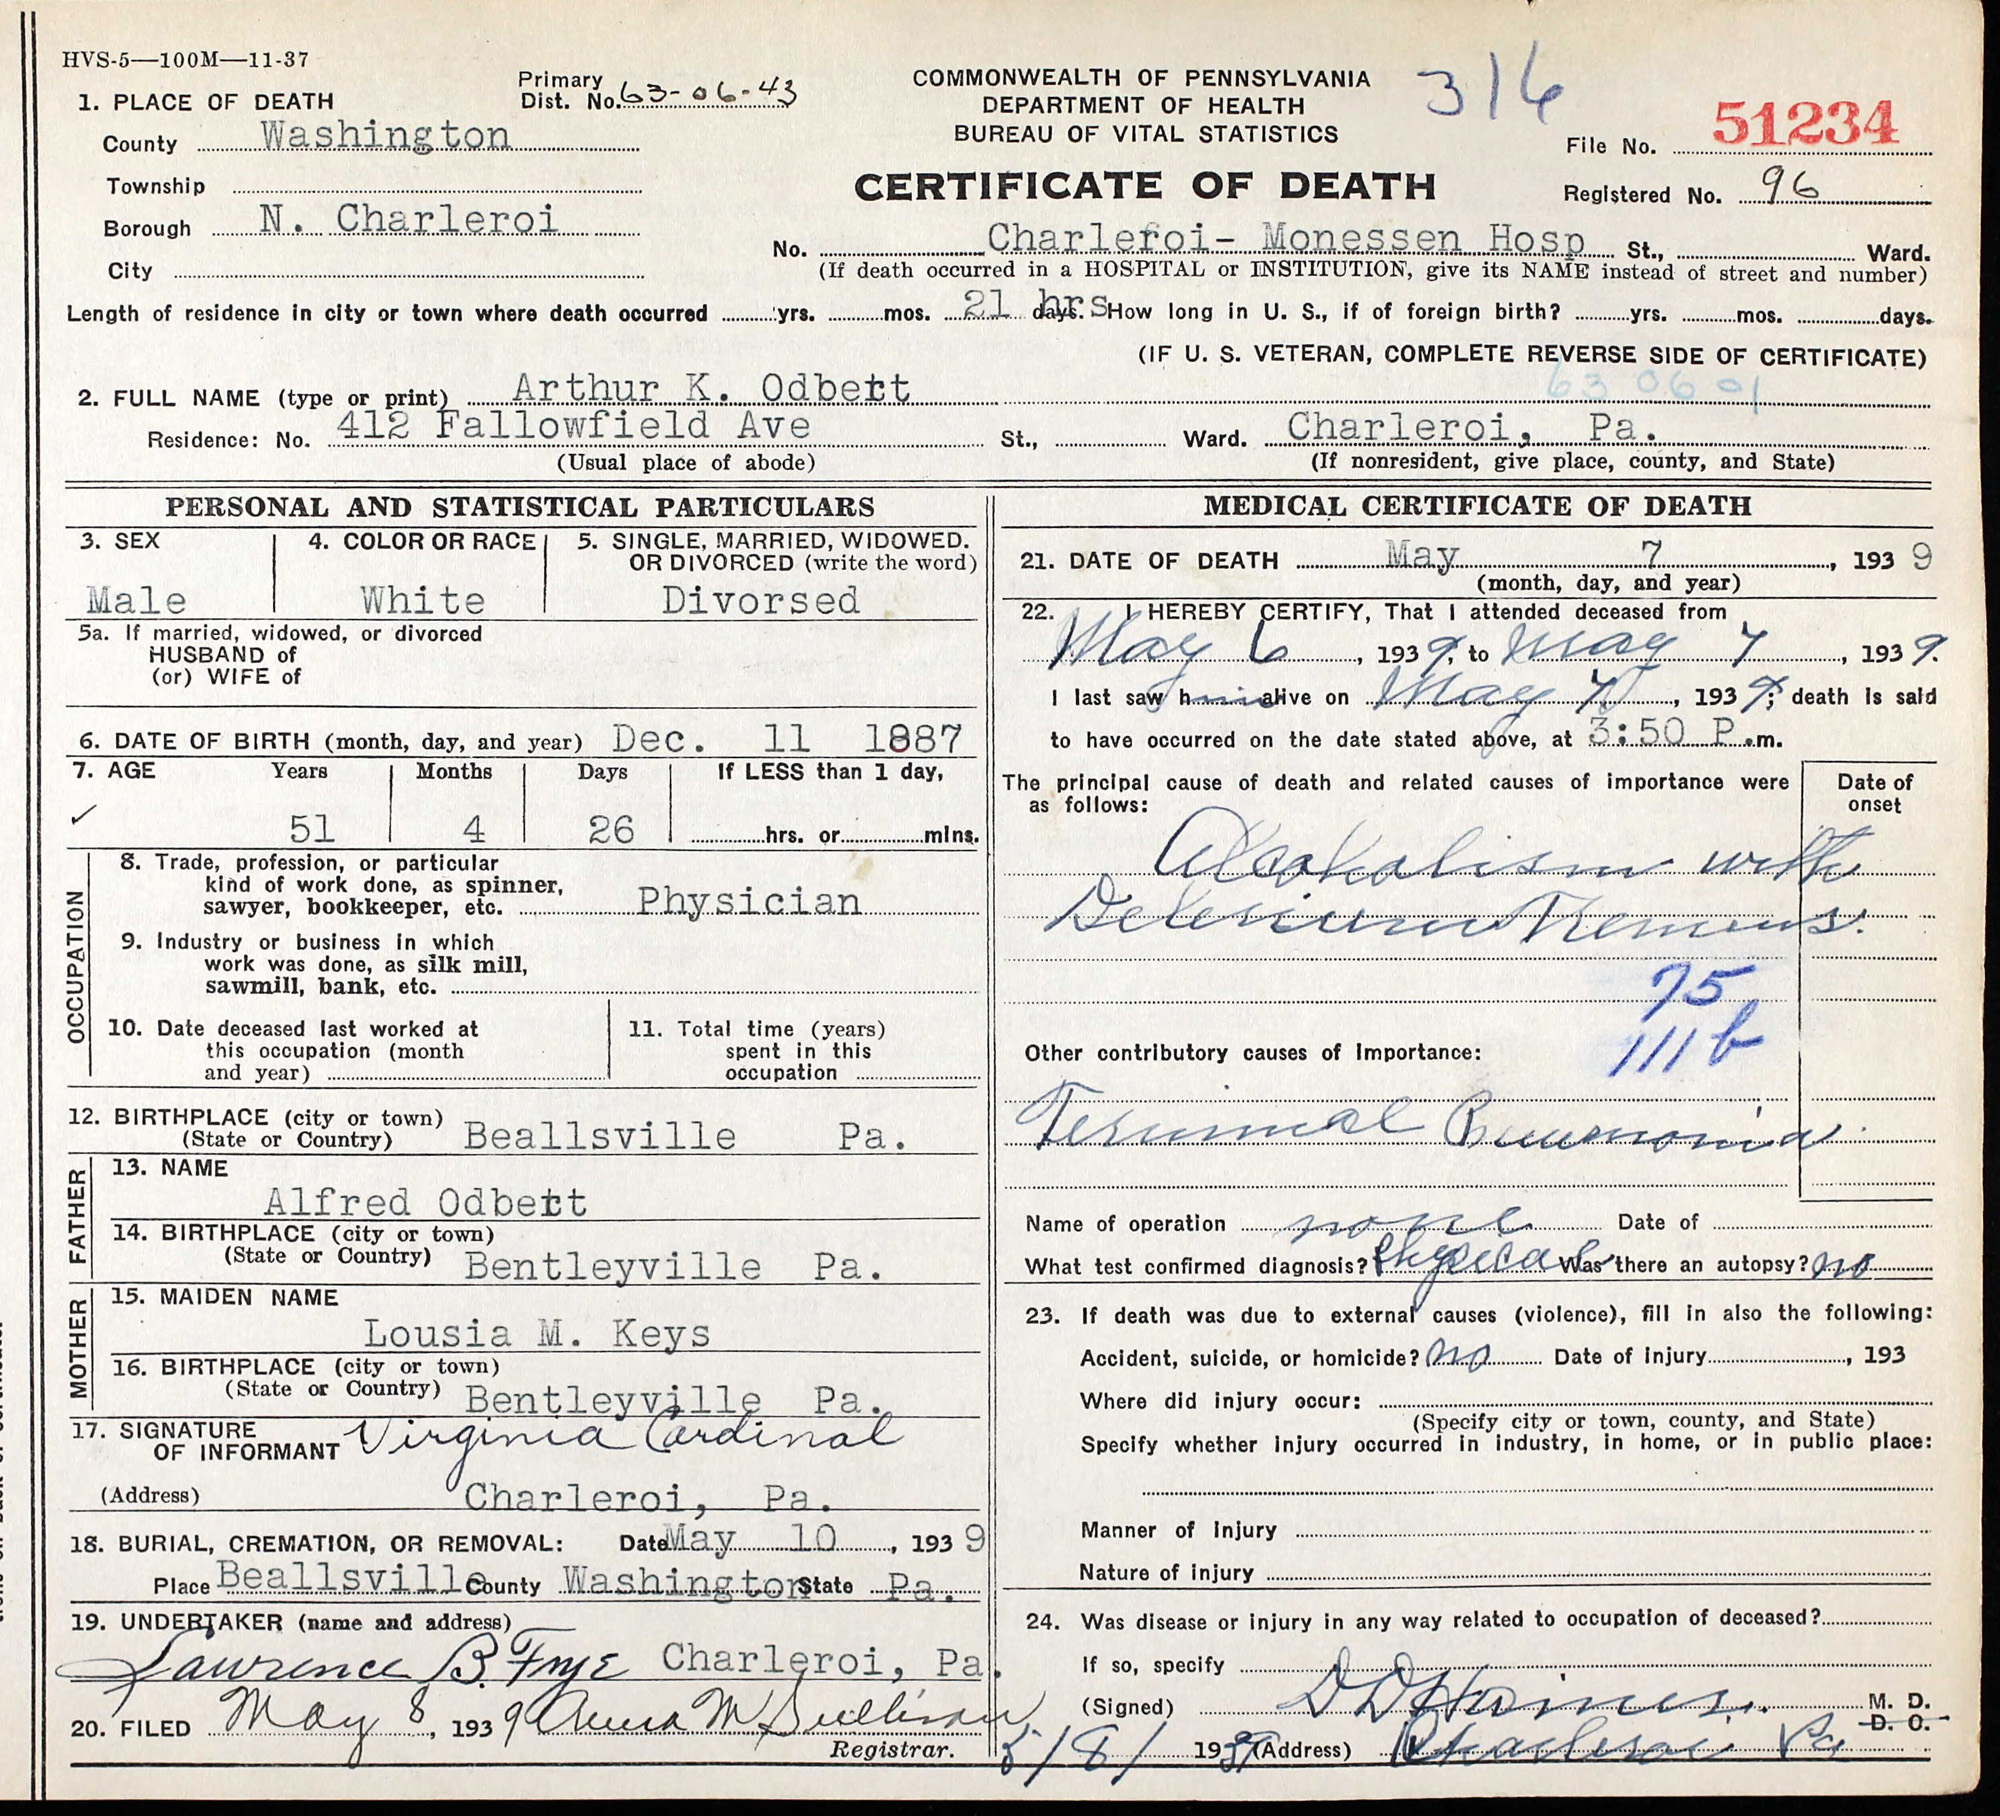 HVS-5—100M—11-37
316
COMMONWEALTH OF PENNSYLVANIA
DEPARTMENT OF HEALTH
BUREAU OF VITAL STATISTICS
CERTIFICATE OF DEATH
Primary Dist. No. 63-06-43
File No. 51234
Registered No. 96
1. PLACE OF DEATH
County Washington
Township
Borough N. Charleroi
City
No. Charleroi- Monessen Hosp St., Ward.
(If death occurred in a HOSPITAL or INSTITUTION, give its NAME instead of street and number)
Length of residence in city or town where death occurred yrs. mos. 21 hrs days. How long in U. S., if of foreign birth? yrs. mos. days.
(IF U. S. VETERAN, COMPLETE REVERSE SIDE OF CERTIFICATE)
63 06 01
2. FULL NAME (type or print) Arthur K. Odbert
Residence: No. 412 Fallowfield Ave St., Ward. Charleroi, Pa.
(Usual place of abode) (If nonresident, give place, county, and State)
PERSONAL AND STATISTICAL PARTICULARS
3. SEX
Male
4. COLOR OR RACE
White
5. SINGLE, MARRIED, WIDOWED. OR DIVORCED (write the word)
Divorsed
5a. If married, widowed, or divorced
HUSBAND of
(or) WIFE of
6. DATE OF BIRTH (month, day, and year) Dec. 11 1887
7. AGE Years Months Days If LESS than 1 day,
✓ 51 4 26 hrs. or mins.
OCCUPATION
8. Trade, profession, or particular
kind of work done, as spinner,
sawyer, bookkeeper, etc. Physician
9. Industry or business in which
work was done, as silk mill,
sawmill, bank, etc.
10. Date deceased last worked at
this occupation (month
and year)
11. Total time (years)
spent in this
occupation
12. BIRTHPLACE (city or town)
(State or Country) Beallsville Pa.
FATHER
13. NAME
Alfred Odbert
14. BIRTHPLACE (city or town)
(State or Country) Bentleyville Pa.
MOTHER
15. MAIDEN NAME
Lousia M. Keys
16. BIRTHPLACE (city or town)
(State or Country) Bentleyville Pa.
17. SIGNATURE
OF INFORMANT Virginia Cardinal
(Address) Charleroi, Pa.
18. BURIAL, CREMATION, OR REMOVAL: Date May 10, 1939
Place Beallsville County Washington State Pa.
19. UNDERTAKER (name and address)
Lawrence B. Frye Charleroi, Pa.
20. FILED May 8, 1939 Anna M Sullivan
Registrar.
MEDICAL CERTIFICATE OF DEATH
21. DATE OF DEATH May 7, 1939
(month, day, and year)
22. I HEREBY CERTIFY, That I attended deceased from
May 6, 1939, to May 7, 1939.
I last saw him alive on May 7, 1939; death is said
to have occurred on the date stated above, at 3:50 P.m.
The principal cause of death and related causes of importance were
as follows:
Date of
onset
Alcoholism with
Delerium Tremens.
75
111 b
Other contributory causes of importance:
Terminal Pneumonia
Name of operation none Date of
What test confirmed diagnosis? Physical Was there an autopsy? no
23. If death was due to external causes (violence), fill in also the following:
Accident, suicide, or homicide? no Date of injury, 193
Where did injury occur:
(Specify city or town, county, and State)
Specify whether injury occurred in industry, in home, or in public place:
Manner of injury
Nature of injury
24. Was disease or injury in any way related to occupation of deceased?
If so, specify
(Signed) M. D.
D. O.
5/8/ 1939 (Address) Charleroi Pa